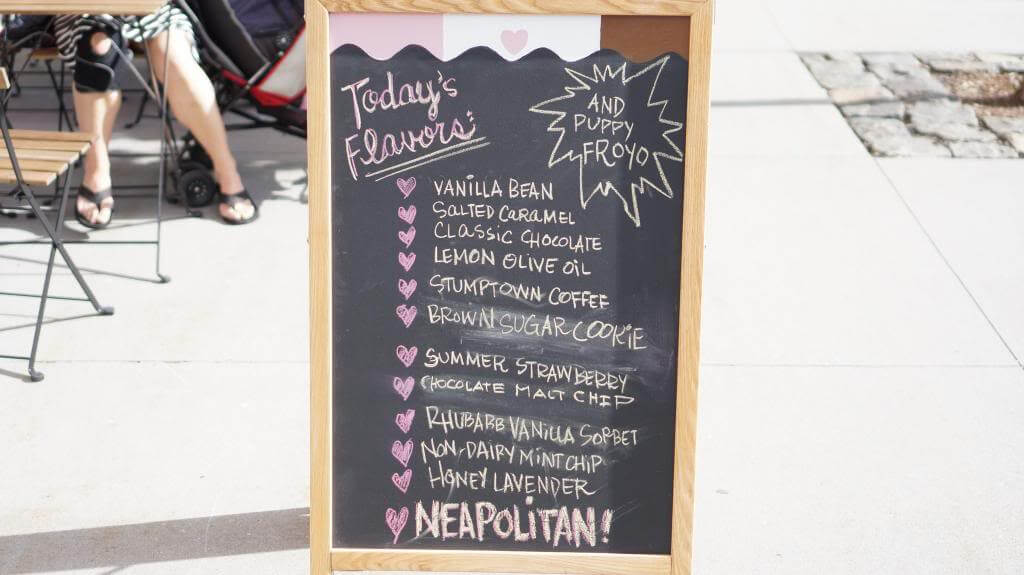 Today's
Flavors:
AND
PUPPY
FROYO
VANILLA BEAN
SALTED CARAMEL
CLASSIC CHOCOLATE
LEMON OLIVE OIL
STUMPTOWN COFFEE
BROWN SUGAR COOKIE
SUMMER STRAWBERRY
CHOCOLATE MALT CHIP
RHUBARB VANILLA SORBET
NON-DAIRY MINT CHIP
HONEY LAVENDER
NEAPOLITAN!